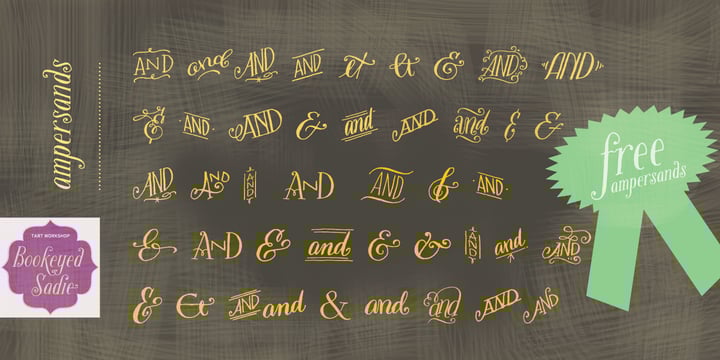 ampersands
AND and AND AND & & & AND "AND"
& AND AND & and AND and & &
AND AND AND AND AND & AND
& AND & and & & AND and AND
& & AND and & and and AND AND
free
ampersands
TART WORKSHOP
Bookeyed
Sadie